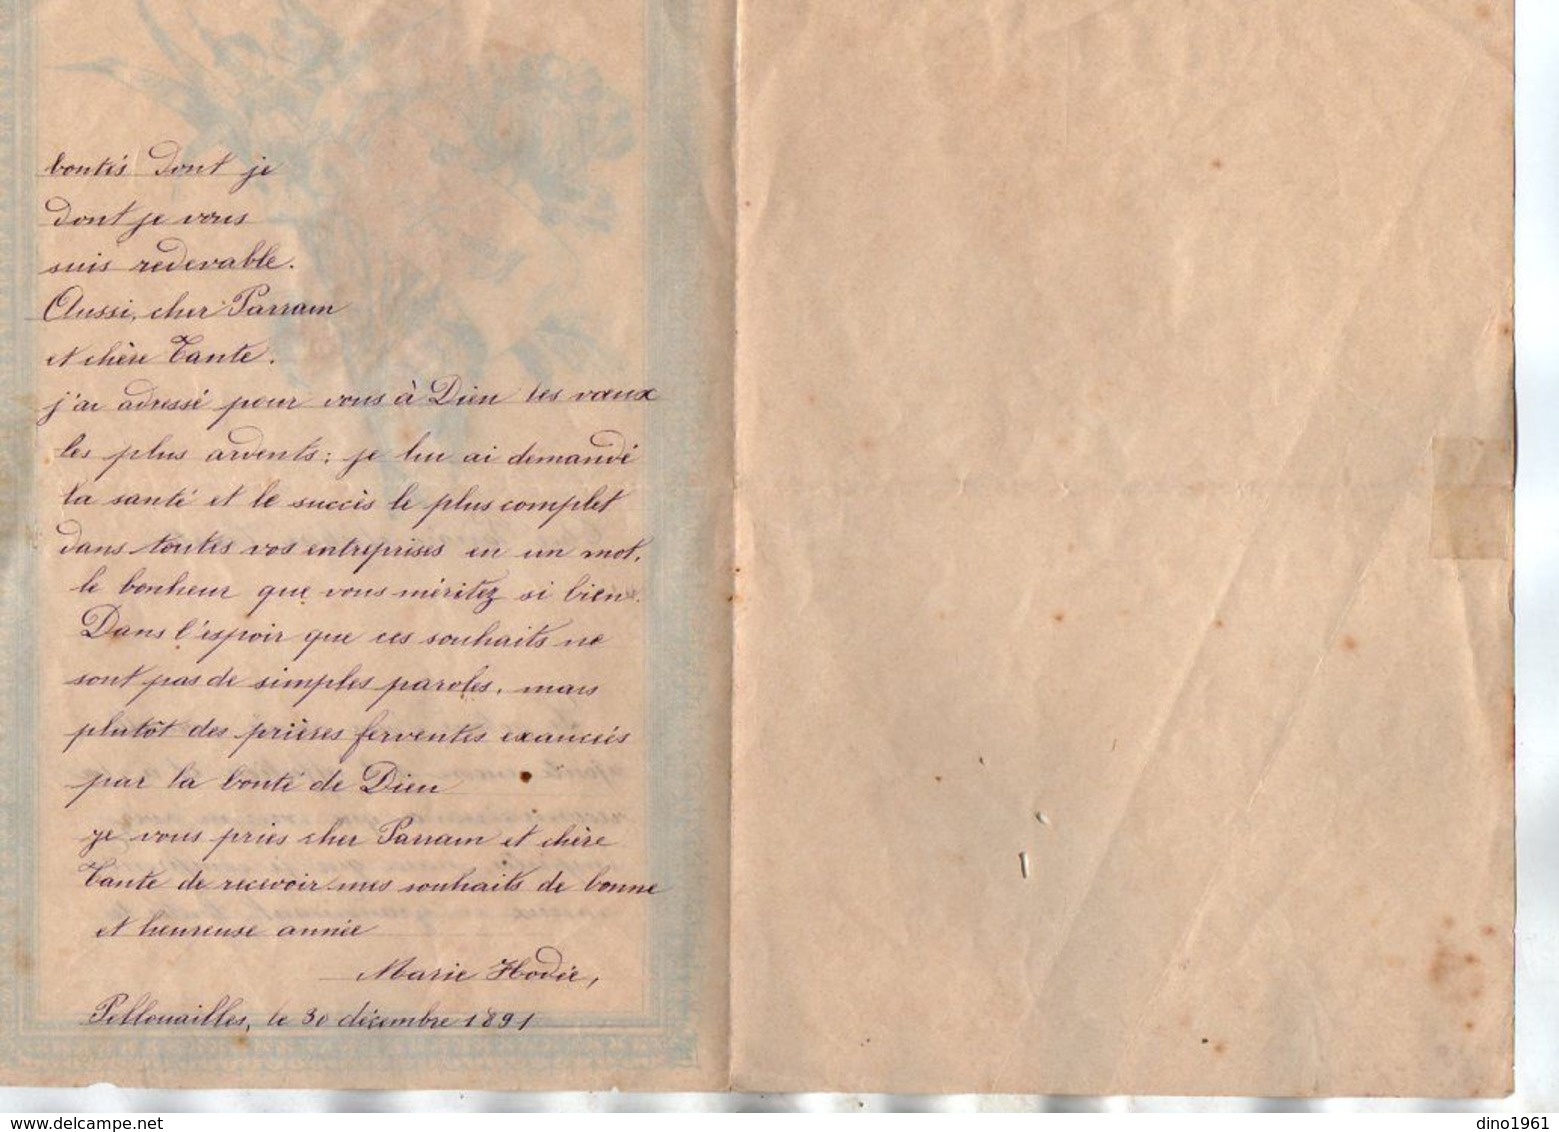 bontés dont je
dont je vous
suis redevable.
Aussi, cher Parrain
et chère Tante.
j'ai adressé pour vous à Dieu les vœux
les plus ardents; je lui ai demandé
la santé et le succès le plus complet
dans toutes vos entreprises en un mot,
le bonheur que vous méritez si bien.
Dans l'espoir que ces souhaits ne
sont pas de simples paroles, mais
plutôt des prières ferventes exaucées
par la bonté de Dieu
je vous pries cher Parrain et chère
Tante de recevoir mes souhaits de bonne
et heureuse année
Marie Hodée,
Pellouailles, le 30 décembre 1891
delcampe.net
dino1961